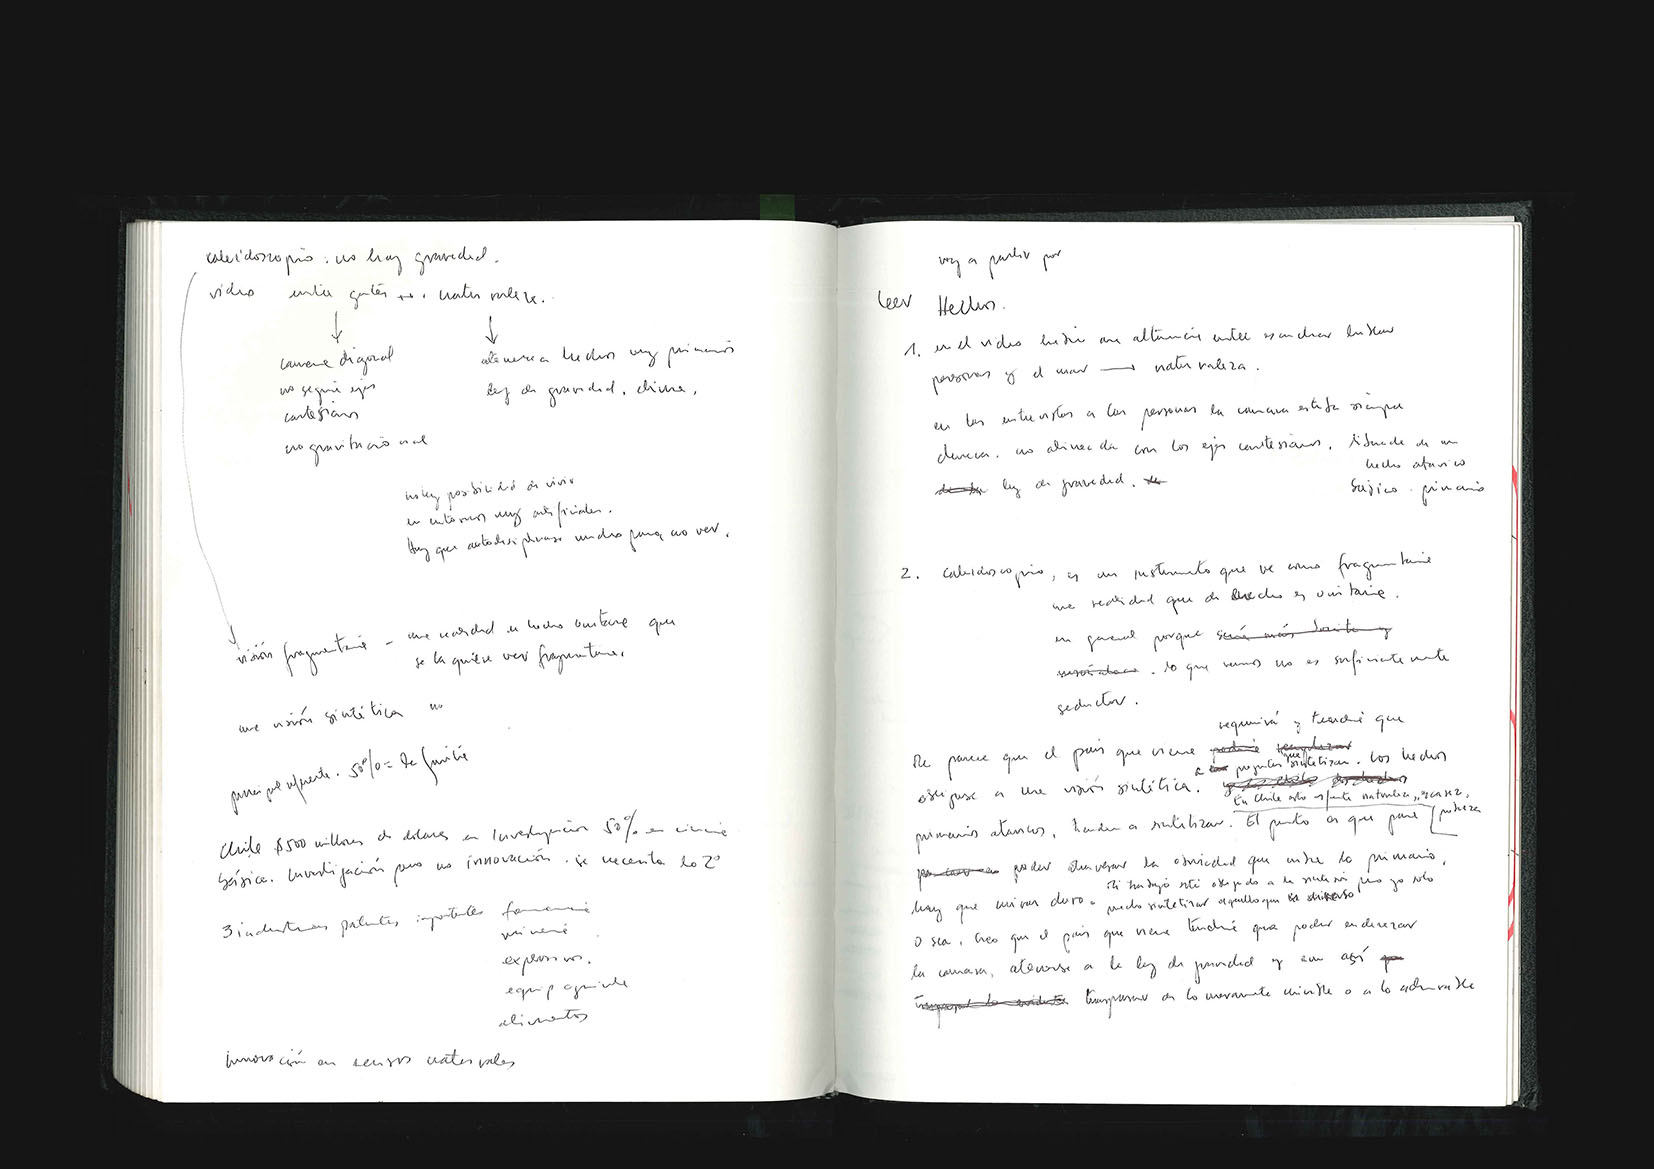 caleidoscopio: no hay gravedad.
video entre gentes naturaleza.
camara diagonal
no seguir ejes
cartesianos
no gravitacional
atenerse a hechos muy primarios
ley de gravedad, clima,
no hay posibilidad de vivir
en entornos muy artificiales.
Hay que autodisciplinarse mucho para no ver.
visión fragmentaria – una realidad de hecho unitaria que
se la quiere ver fragmentaria.
una visión sintética no
50% = de
Chile $500 millones de dolares en Investigación 50% en ciencia
básica. Investigación pero no innovación. se necesita lo 2º
3 industrias patentes importantes
minería
explosivos.
equip agrícola
alimentos
innovación en recursos naturales
voy a partir por
leer Hechos.
1. en el video había una alternancia entre escuchar
personas y el mar → naturaleza.
en las entrevistas a las personas la camara estaba siempre
chueca. no alineada con los ejes cartesianos.
hecho atavico
básico. primario
ley de gravedad.
2. caleidoscopio, es un instrumento que ve como fragmentaria
una realidad que de hecho es unitaria.
en general porque
lo que vemos no es suficientemente
seductor.
requerirá y tendrá que
Me parece que el país que viene
a preguntas que sintetizar. Los hechos
abocarse a una visión sintética.
En Chile naturaleza, escasez,
pobreza
primarios atavicos, tienden a sintetizar. El punto es que para
poder atravesar la obviedad que entre lo primario,
Mi trabajo está abocado a la síntesis pero yo solo
hay que mirar duro. puedo sintetizar aquello que es diverso
o sea, creo que el país que viene tendrá que poder enderezar
la camara, atenerse a la ley de gravedad y aun así
traspasar de lo meramente visible a lo admirable